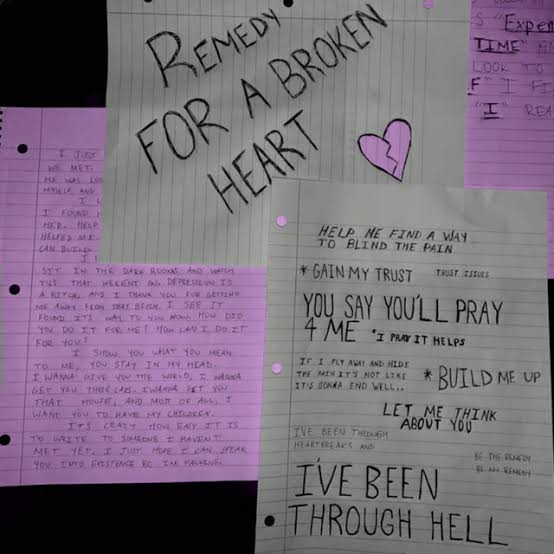 REMEDY
FOR A BROKEN
HEART
"EXPEN
TIME"
LOOK TO
"I
"I" REA
I JUST
WE MET.
ME WAS LOS
MYSELF, AND
I L
I FOUND
HELP
HELPED ME
CAN BUILD
SIT IN THE DARK ROOMS AND WATCH
TVS THAT WERENT ON. DEPRESSION IS
A BITCH, AND I THANK YOU FOR GETTING
ME AWAY FROM THAT BITCH. I SEE IT
FOUND ITS WAY TO YOU NOW. HOW DID
YOU DO IT FOR ME? HOW CAN I DO IT
FOR YOU?
I SHOW YOU WHAT YOU MEAN
TO ME, YOU STAY IN MY HEAD.
I WANNA GIVE YOU THE WORLD, I WANNA
GET YOU THESE CARS. I WANNA GET YOU
THAT HOUSE, AND MOST OF ALL, I
WANT YOU TO HAVE MY CHILDREN.
ITS CRAZY HOW EASY IT IS
TO WRITE TO SOMEONE I HAVENT
MET YET. I JUST HOPE I CAN SPEAK
YOU INTO EXISTENCE BC IM FALLING.
HELP ME FIND A WAY
TO BLIND THE PAIN
* GAIN MY TRUST TRUST ISSUES
YOU SAY YOU'LL PRAY
4 ME *I PRAY IT HELPS
IF I FLY AWAY AND HIDE
THE PAIN IT'S NOT LIKE
IT'S GONNA END WELL..
* BUILD ME UP
LET ME THINK
ABOUT YOU
I'VE BEEN THROUGH
HEARTBREAKS AND
BE THE REMEDY
BE MY REMEDY
I'VE BEEN
THROUGH HELL